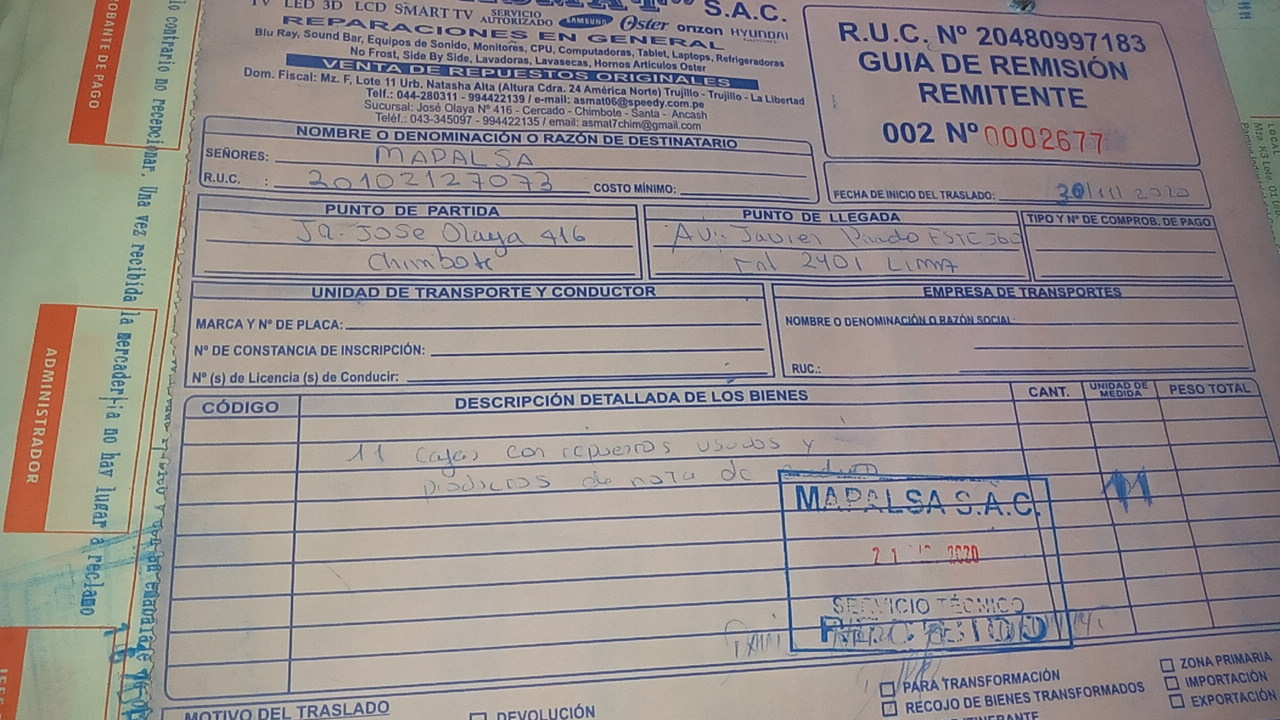 S.A.C.
TV LED 3D LCD SMART TV SERVICIO AUTORIZADO SAMSUNG Oster onzon HYUNDAI
REPARACIONES EN GENERAL
Blu Ray, Sound Bar, Equipos de Sonido, Monitores, CPU, Computadoras, Tablet, Laptops, Refrigeradoras
No Frost, Side By Side, Lavadoras, Lavasecas, Hornos Articulos Oster
VENTA DE REPUESTOS ORIGINALES
Dom. Fiscal: Mz. F, Lote 11 Urb. Natasha Alta (Altura Cdra. 24 América Norte) Trujillo - Trujillo - La Libertad
Telf.: 044-280311 - 994422139 / e-mail: asmat06@speedy.com.pe
Sucursal: José Olaya Nº 416 - Cercado - Chimbote - Santa - Ancash
Teléf.: 043-345097 - 994422135 / email: asmat7chim@gmail.com
R.U.C. Nº 20480997183
GUIA DE REMISIÓN
REMITENTE
002 Nº 0002677
NOMBRE O DENOMINACIÓN O RAZÓN DE DESTINATARIO
SEÑORES: MAPALSA
R.U.C. : 20102127073 COSTO MÍNIMO:
FECHA DE INICIO DEL TRASLADO: 30/11/2020
PUNTO DE PARTIDA
Jr. JOSE Olaya 416
Chimbote
PUNTO DE LLEGADA
Av. Javier Prado ESTE
2401 LIMA
TIPO Y Nº DE COMPROB. DE PAGO
UNIDAD DE TRANSPORTE Y CONDUCTOR
MARCA Y Nº DE PLACA:
Nº DE CONSTANCIA DE INSCRIPCIÓN:
Nº (s) de Licencia (s) de Conducir:
EMPRESA DE TRANSPORTES
NOMBRE O DENOMINACIÓN O RAZÓN SOCIAL:
RUC.:
CÓDIGO DESCRIPCIÓN DETALLADA DE LOS BIENES CANT. UNIDAD DE MEDIDA PESO TOTAL
11 cajas con repuestos usados y
productos de nota de
11
MAPALSA S.A.C.
21 2020
SERVICIO TÉCNICO
MOTIVO DEL TRASLADO
DEVOLUCIÓN
PARA TRANSFORMACIÓN
RECOJO DE BIENES TRANSFORMADOS
ZONA PRIMARIA
IMPORTACIÓN
EXPORTACIÓN
ADMINISTRADOR
OBANTE DE PAGO
lo contrario no recepcionar. Una vez recibida la mercaderia no hay lugar a reclamo